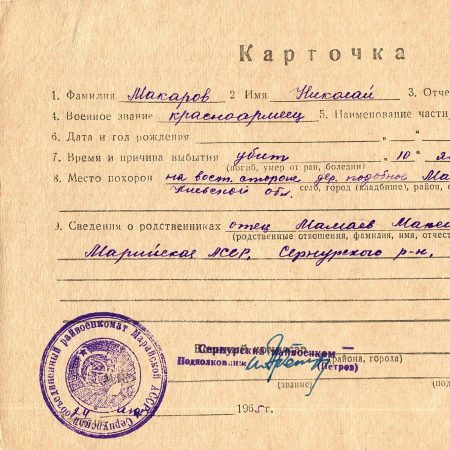 Карточка
1. Фамилия Макаров 2 Имя Николай 3. Отче
4. Военное звание красноармеец 5. Наименование части,
6. Дата и год рождения " "
7. Время и причина выбытия убит " 10 " я
(погиб, умер от ран, болезни)
8. Место похорон на вост. стороне дер. подобное Ма
Киевской обл. село, город (кладбище), район, о
9. Сведения о родственниках отец Мамаев Макси
(родственные отношения, фамилия, имя, отчест
Марийская АССР, Сернурского р-н,
Сернурский райвоенком
(района, города)
Подполковник (Петров)
(звание) (под
1965 г.
Сернурский объединенный райвоенкомат Марийской АССР